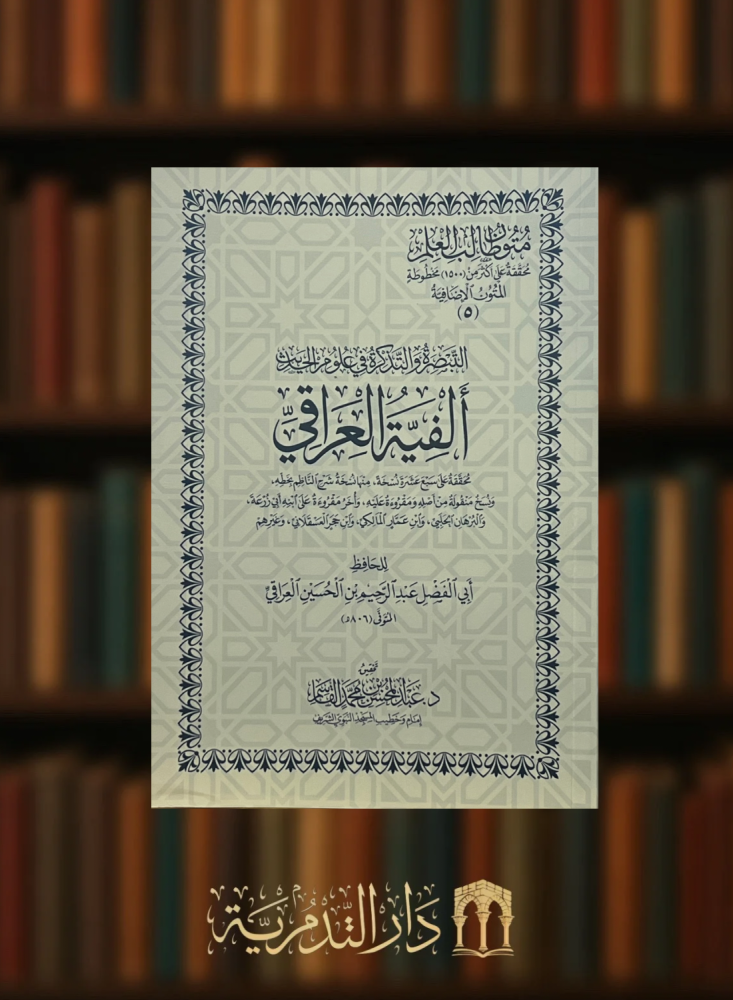 مُتُونُ طَالِبِ الْعِلْمِ
مُحَقَّقَةٌ عَلَى أَكْثَرَ مِنْ (١٥٠٠) مَخْطُوطَةٍ
المُتُونُ الْإِضَافِيَّةُ
(٥)
التَّبْصِرَةُ وَالتَّذْكِرَةُ فِي عُلُومِ الْحَدِيثِ
أَلْفِيَّةُ الْعِرَاقِيِّ
مُحَقَّقَةٌ عَلَى سَبْعَ عَشْرَةَ نُسْخَةً، مِنْهَا نُسْخَةُ شَرْحِ النَّاظِمِ بِخَطِّهِ،
وَنُسَخٌ مَنْقُولَةٌ مِنْ أَصْلِهِ وَمَقْرُوءَةٌ عَلَيْهِ، وَأُخَرُ مَقْرُوءَةٌ عَلَى ابْنِهِ أَبِي زُرْعَةَ،
وَالْبُرْهَانِ الْحَلَبِيِّ، وَابْنِ عَمَّارٍ الْمَالِكِيِّ، وَابْنِ حَجَرٍ الْعَسْقَلَانِيِّ، وَغَيْرِهِمْ
لِلْحَافِظِ
أَبِي الْفَضْلِ عَبْدِ الرَّحِيمِ بْنِ الْحُسَيْنِ الْعِرَاقِيِّ
المُتَوَفَّى (٨٠٦هـ)
تحقيق
د. عَبْدُ الْمُحْسِنِ بْنُ مُحَمَّدٍ الْقَاسِمُ
إمام وخطيب المسجد النبوي الشريف
دَار التَّدْمُرِيَّة